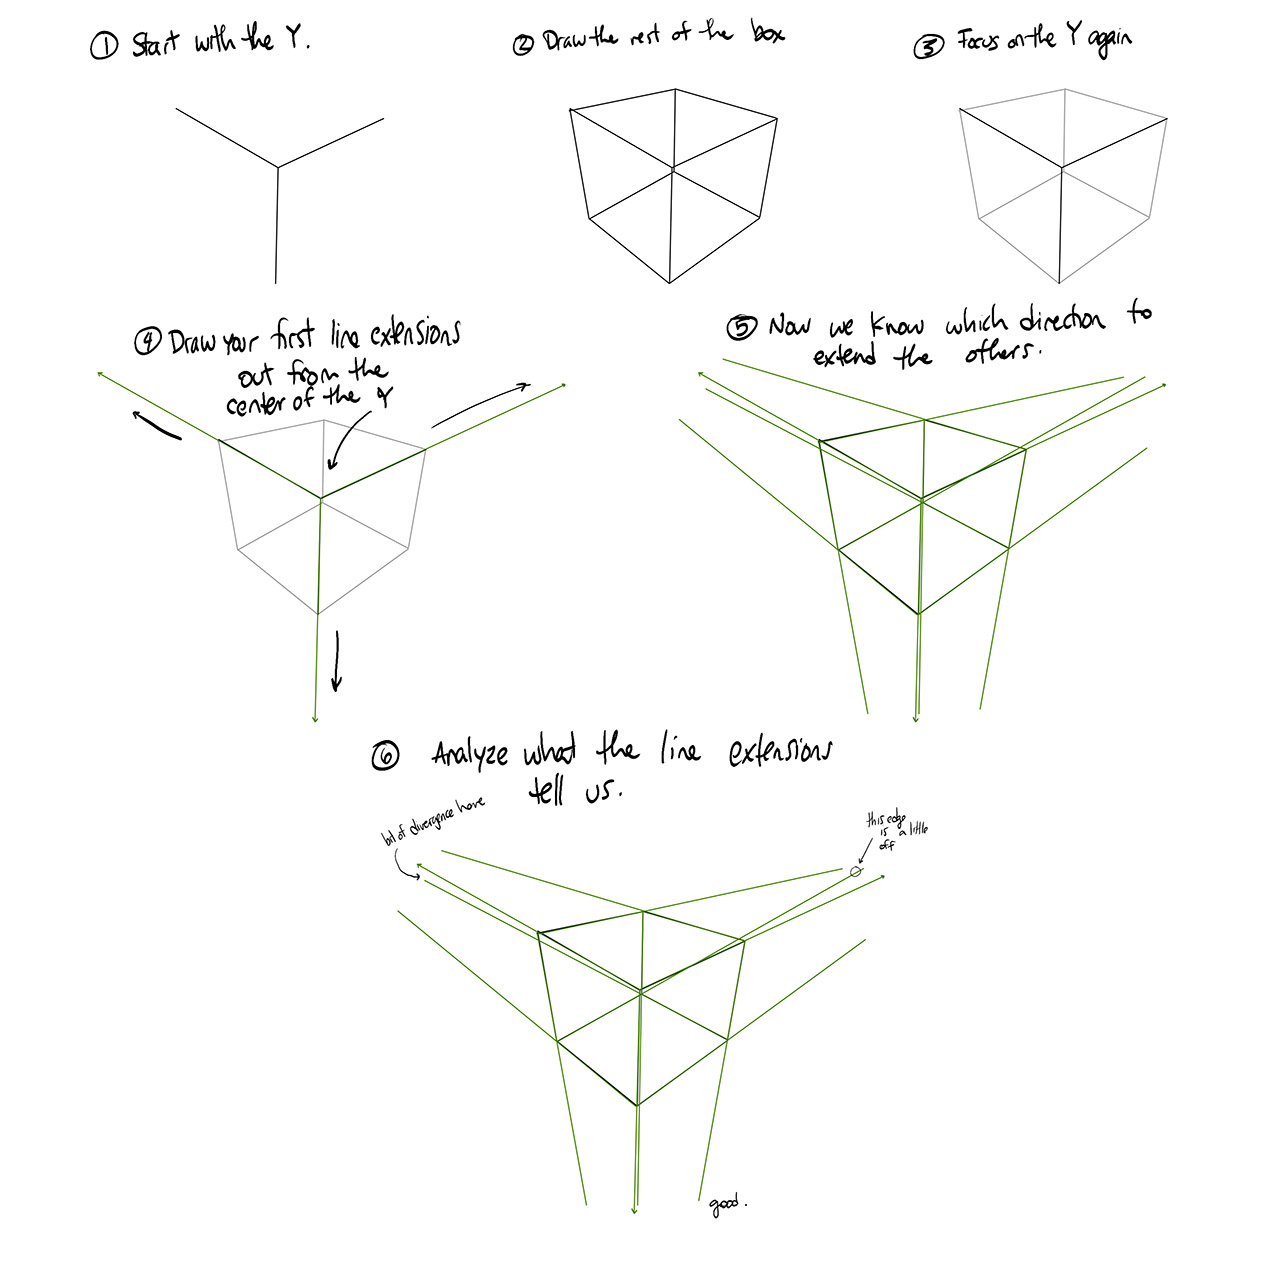 ① Start with the Y.
② Draw the rest of the box
③ Focus on the Y again
④ Draw your first line extensions
out from the
center of the Y
⑤ Now we know which direction to
extend the others.
⑥ Analyze what the line extensions
tell us.
bit of divergence here
this edge
is a little
off
good.